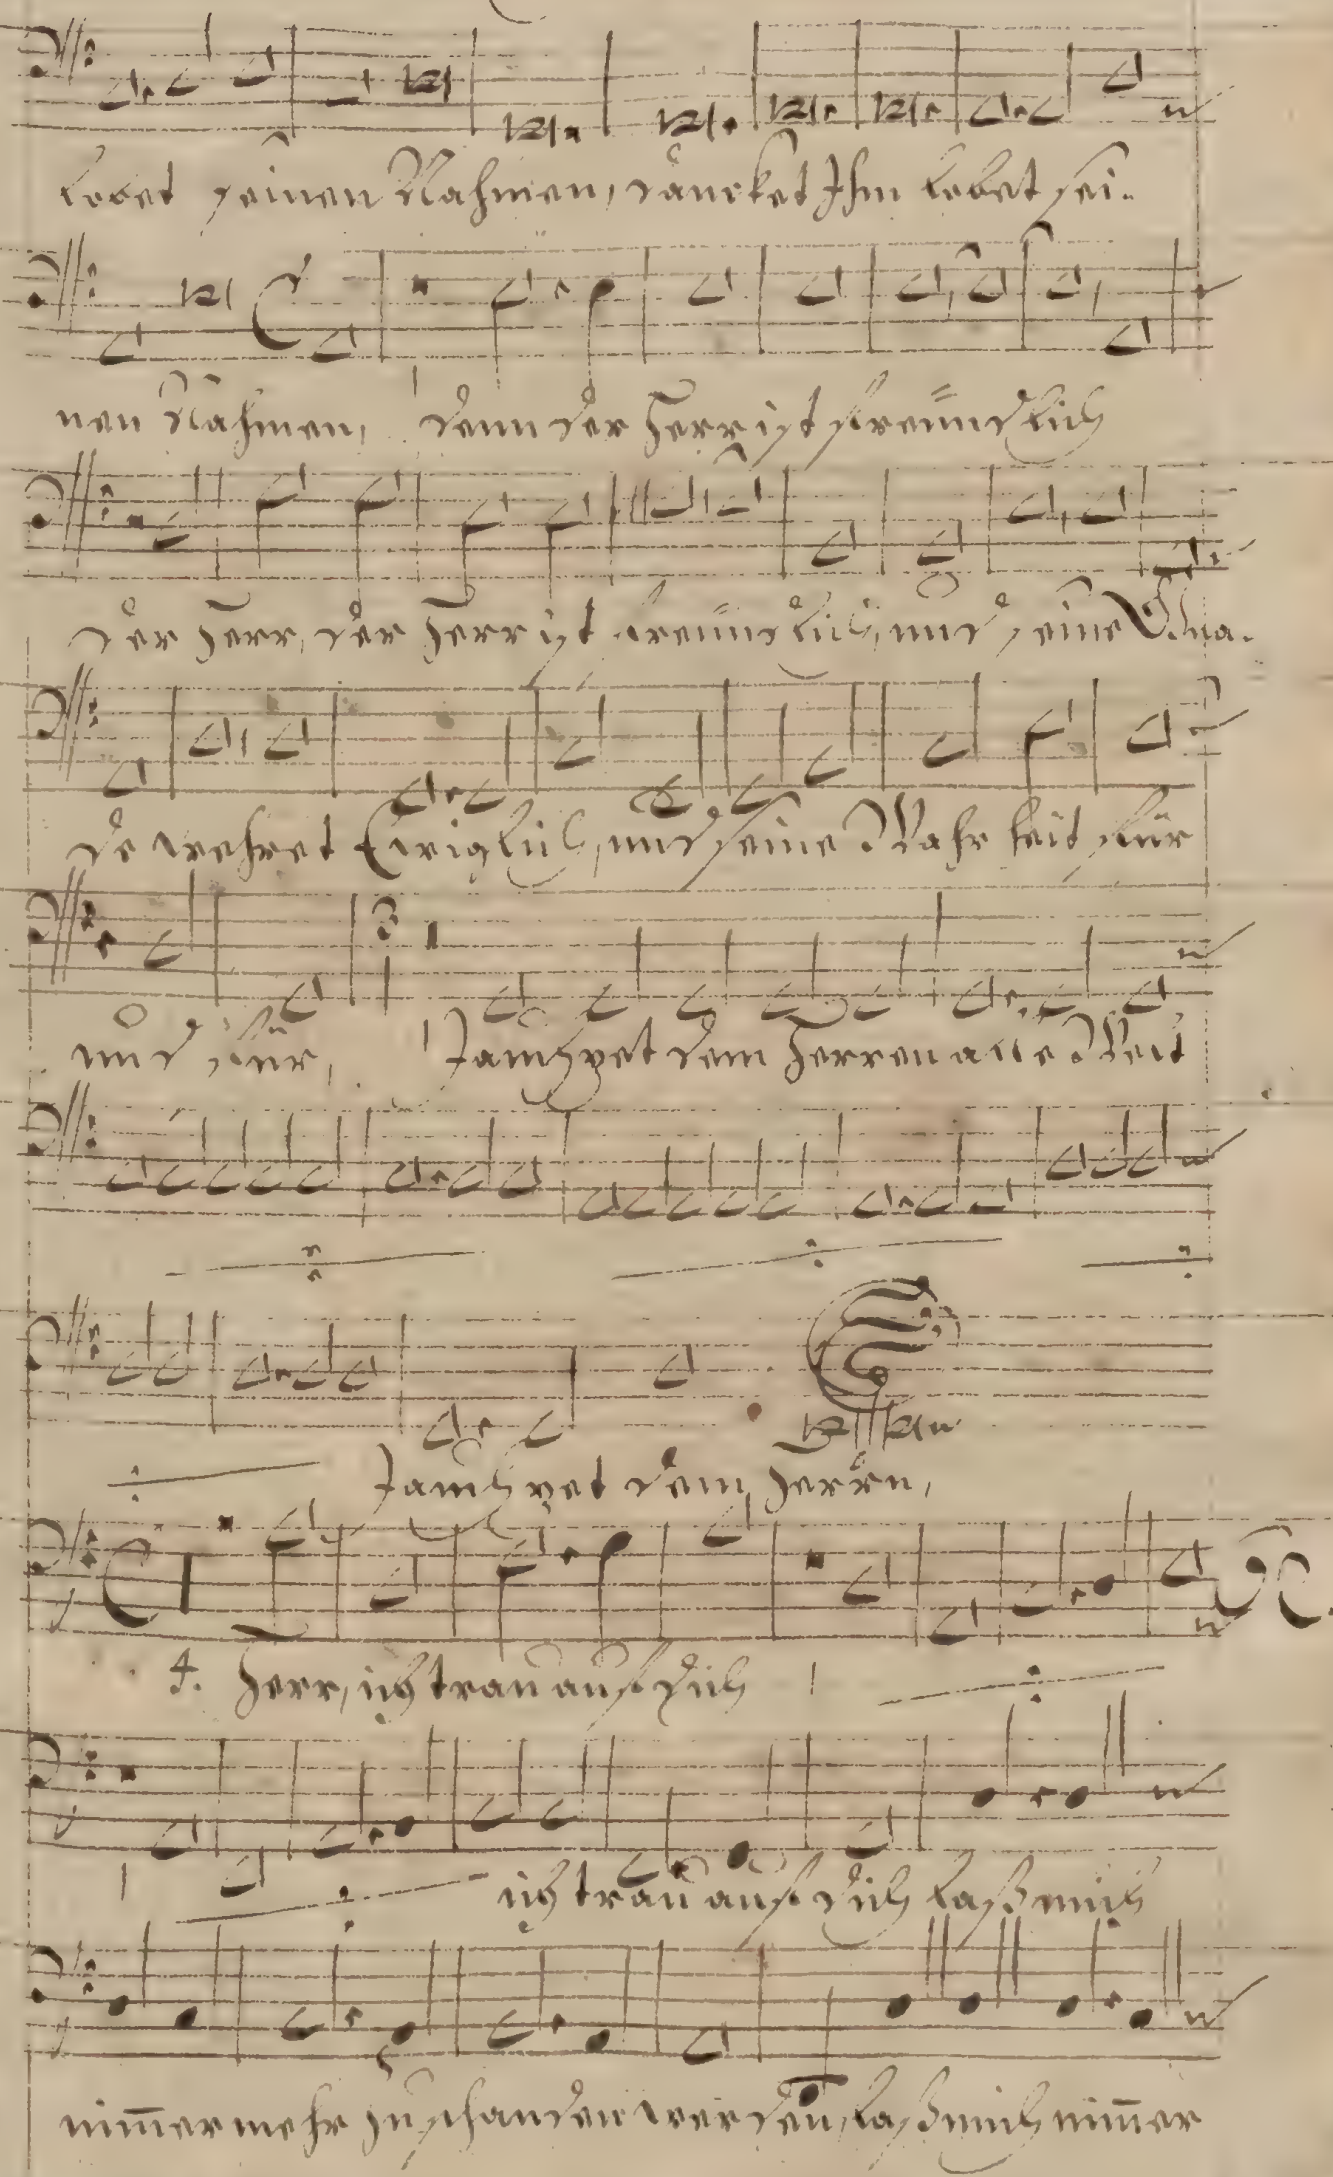 lobet seinen Nahmen, dancket Ihm lobet sei-
nen Nahmen, denn der Herr ist freundlich
der Herr, der Herr ist freundlich, und seine Gna-
de wehret Ewiglich, und seine Wahrheit für
und für, Jauchzet dem Herren alle Welt
Jauchzet dem Herrn,
4. Herr, ich trau auf dich
ich trau auf dich laß mich
nim̄ermehr zu schanden werden, laß mich nim̄er